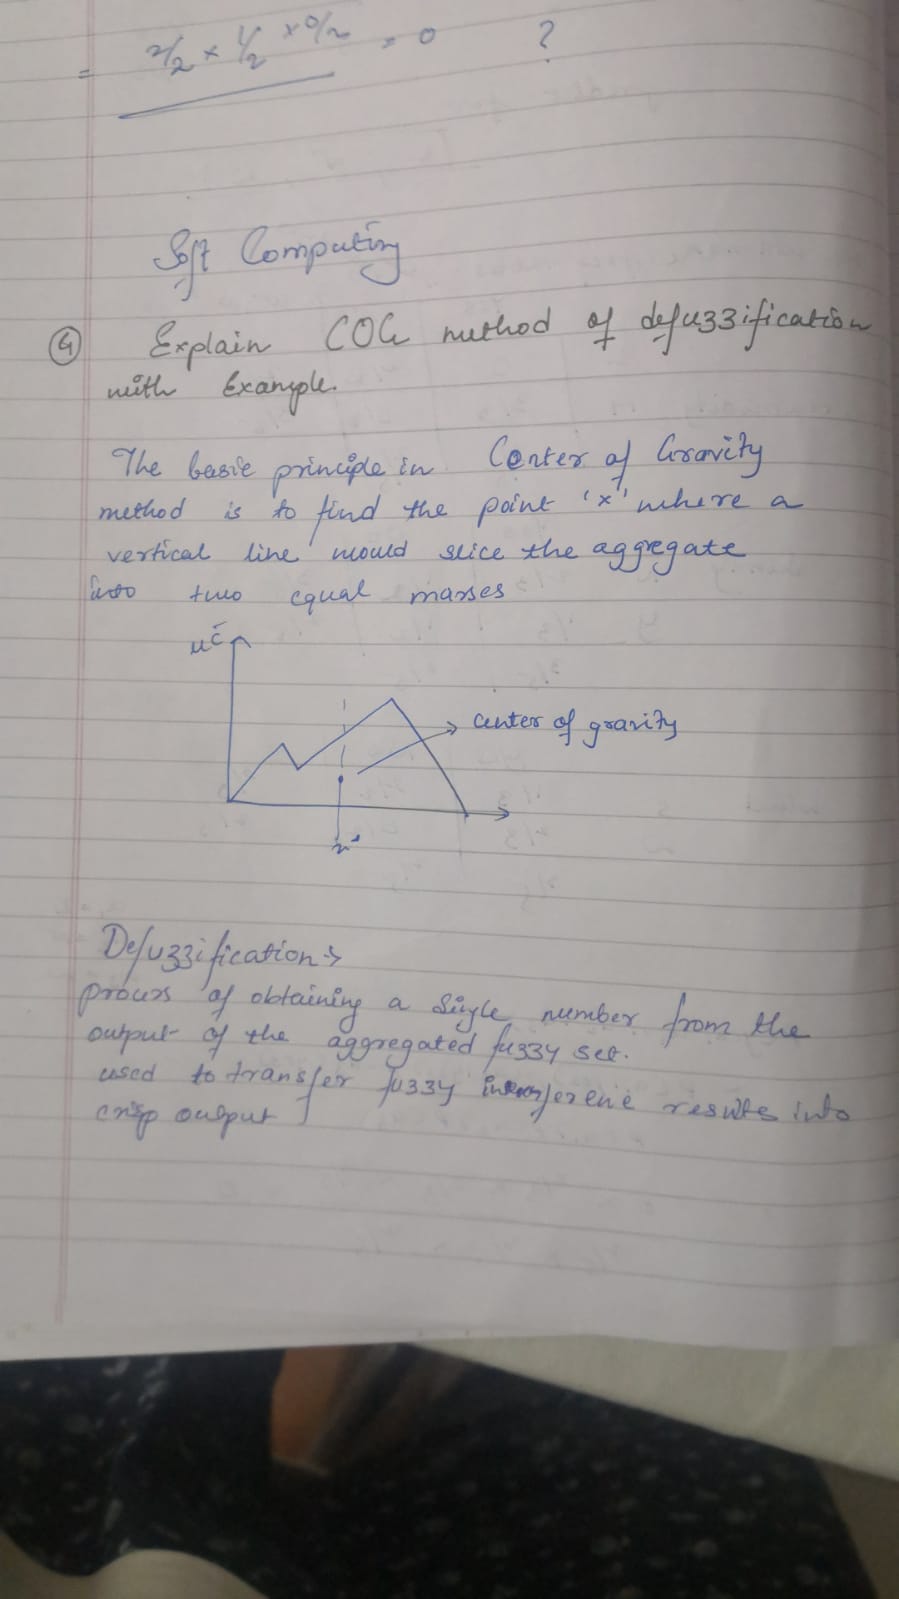 = 2/2 × 1/2 × 0/2 = 0 ?
Soft Computing
Explain COG method of defuzzification
with Example.
The basic principle in Center of Gravity
method is to find the point 'x' where a
vertical line would slice the aggregate
into two equal masses
center of gravity
Defuzzification →
process of obtaining a single number from the
output of the aggregated fuzzy set.
used to transfer fuzzy results into
crisp output